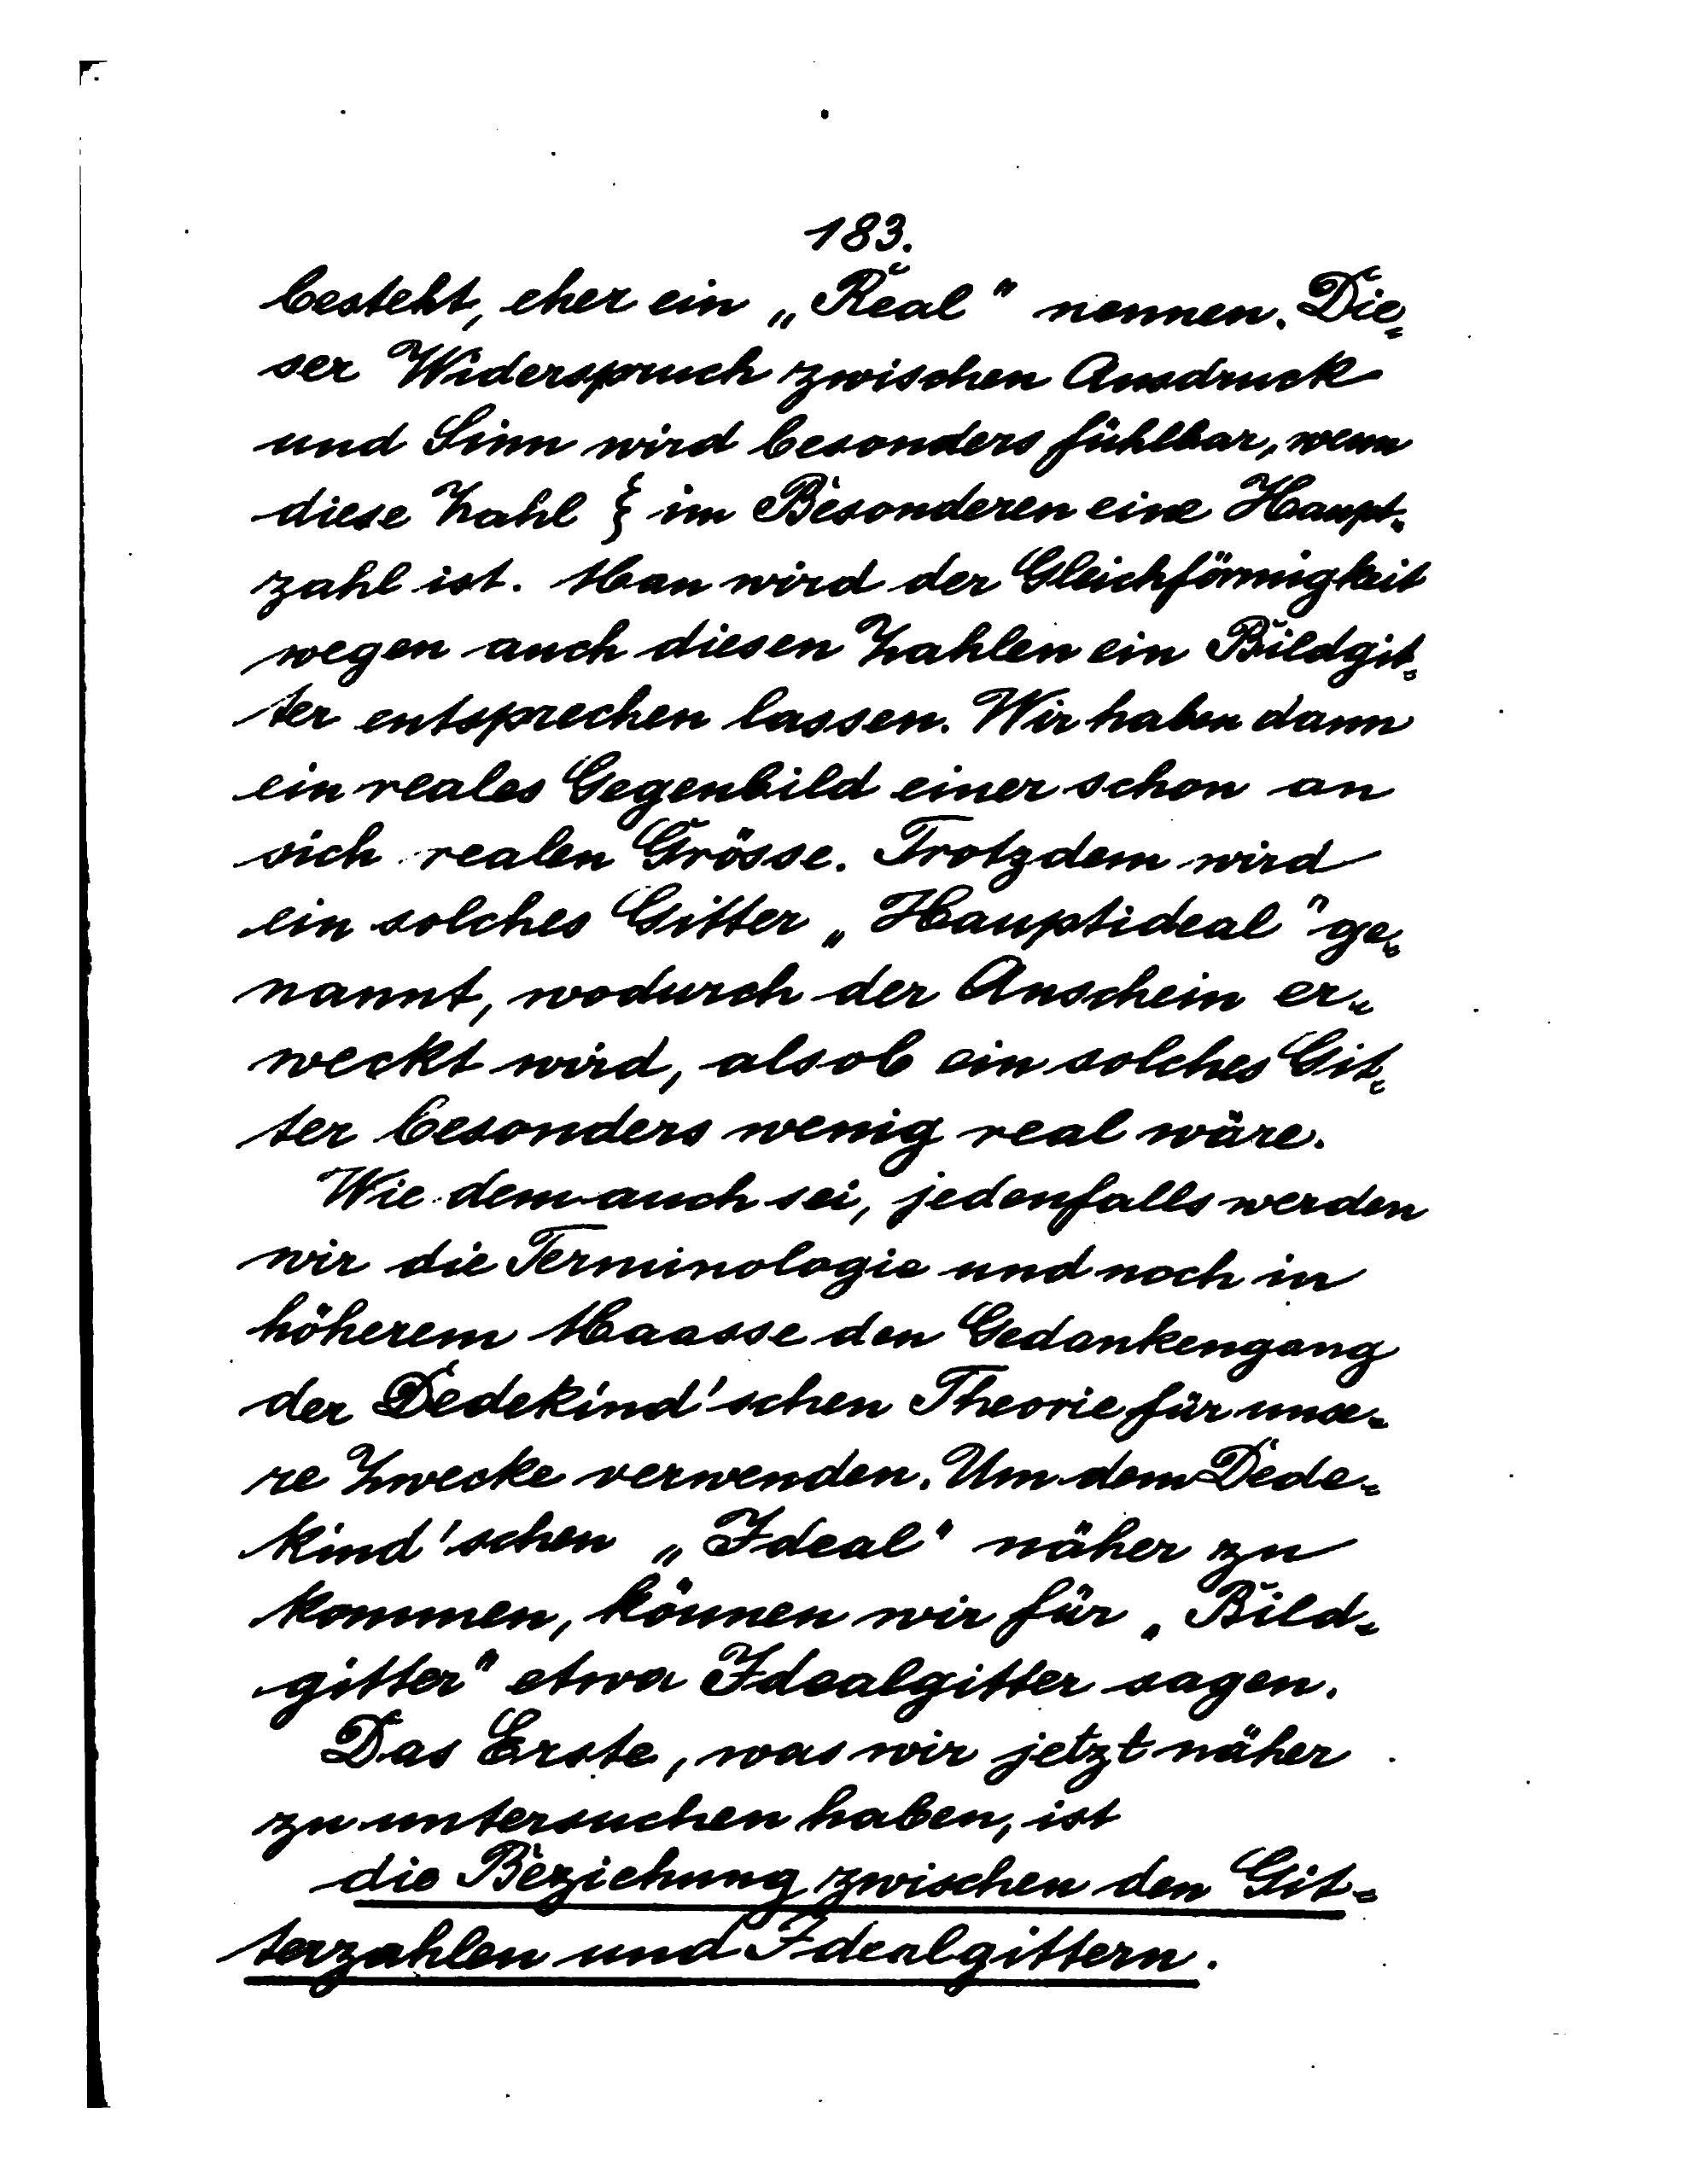 183.
besteht, eher ein „Real“ nennen. Die-
ser Widerspruch zwischen Ausdruck
und Sinn wird besonders fühlbar, wenn
diese Zahl ξ im Besonderen eine Haupt-
zahl ist. Man wird der Gleichförmigkeit
wegen auch diesen Zahlen ein Bildgit-
ter entsprechen lassen. Wir haben dann
ein reales Gegenbild einer schon an
sich realen Grösse. Trotzdem wird
ein solches Gitter „Hauptideal“ ge-
nannt, wodurch der Anschein er-
weckt wird, als ob ein solches Git-
ter besonders wenig real wäre.
Wie dem auch sei, jedenfalls werden
wir die Terminologie und noch in
höherem Maasse den Gedankengang
der Dedekind'schen Theorie für unse-
re Zwecke verwenden. Um dem Dede-
kind'schen „Ideal“ näher zu
kommen, können wir für „Bild-
gitter“ etwa Idealgitter sagen.
Das Erste, was wir jetzt näher
zu untersuchen haben, ist
die Beziehung zwischen den Git-
terzahlen und Idealgittern.